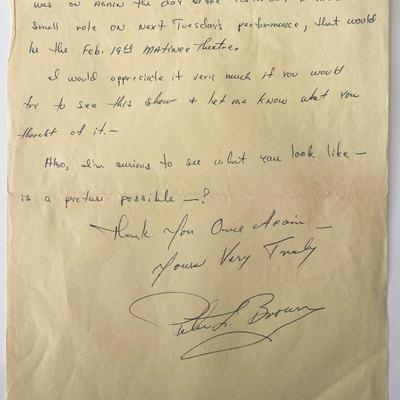 was on AGAIN the day
small role on Next Tuesday's performance, that would
be the Feb. 19th Matinee Theatre.
I would appreciate it very much if you would
try to see this show & let me know what you
thought of it.—
Also, I'm curious to see what you look like —
is a picture possible —?
Thank You Once Again —
Yours Very Truly
Peter L. Brown